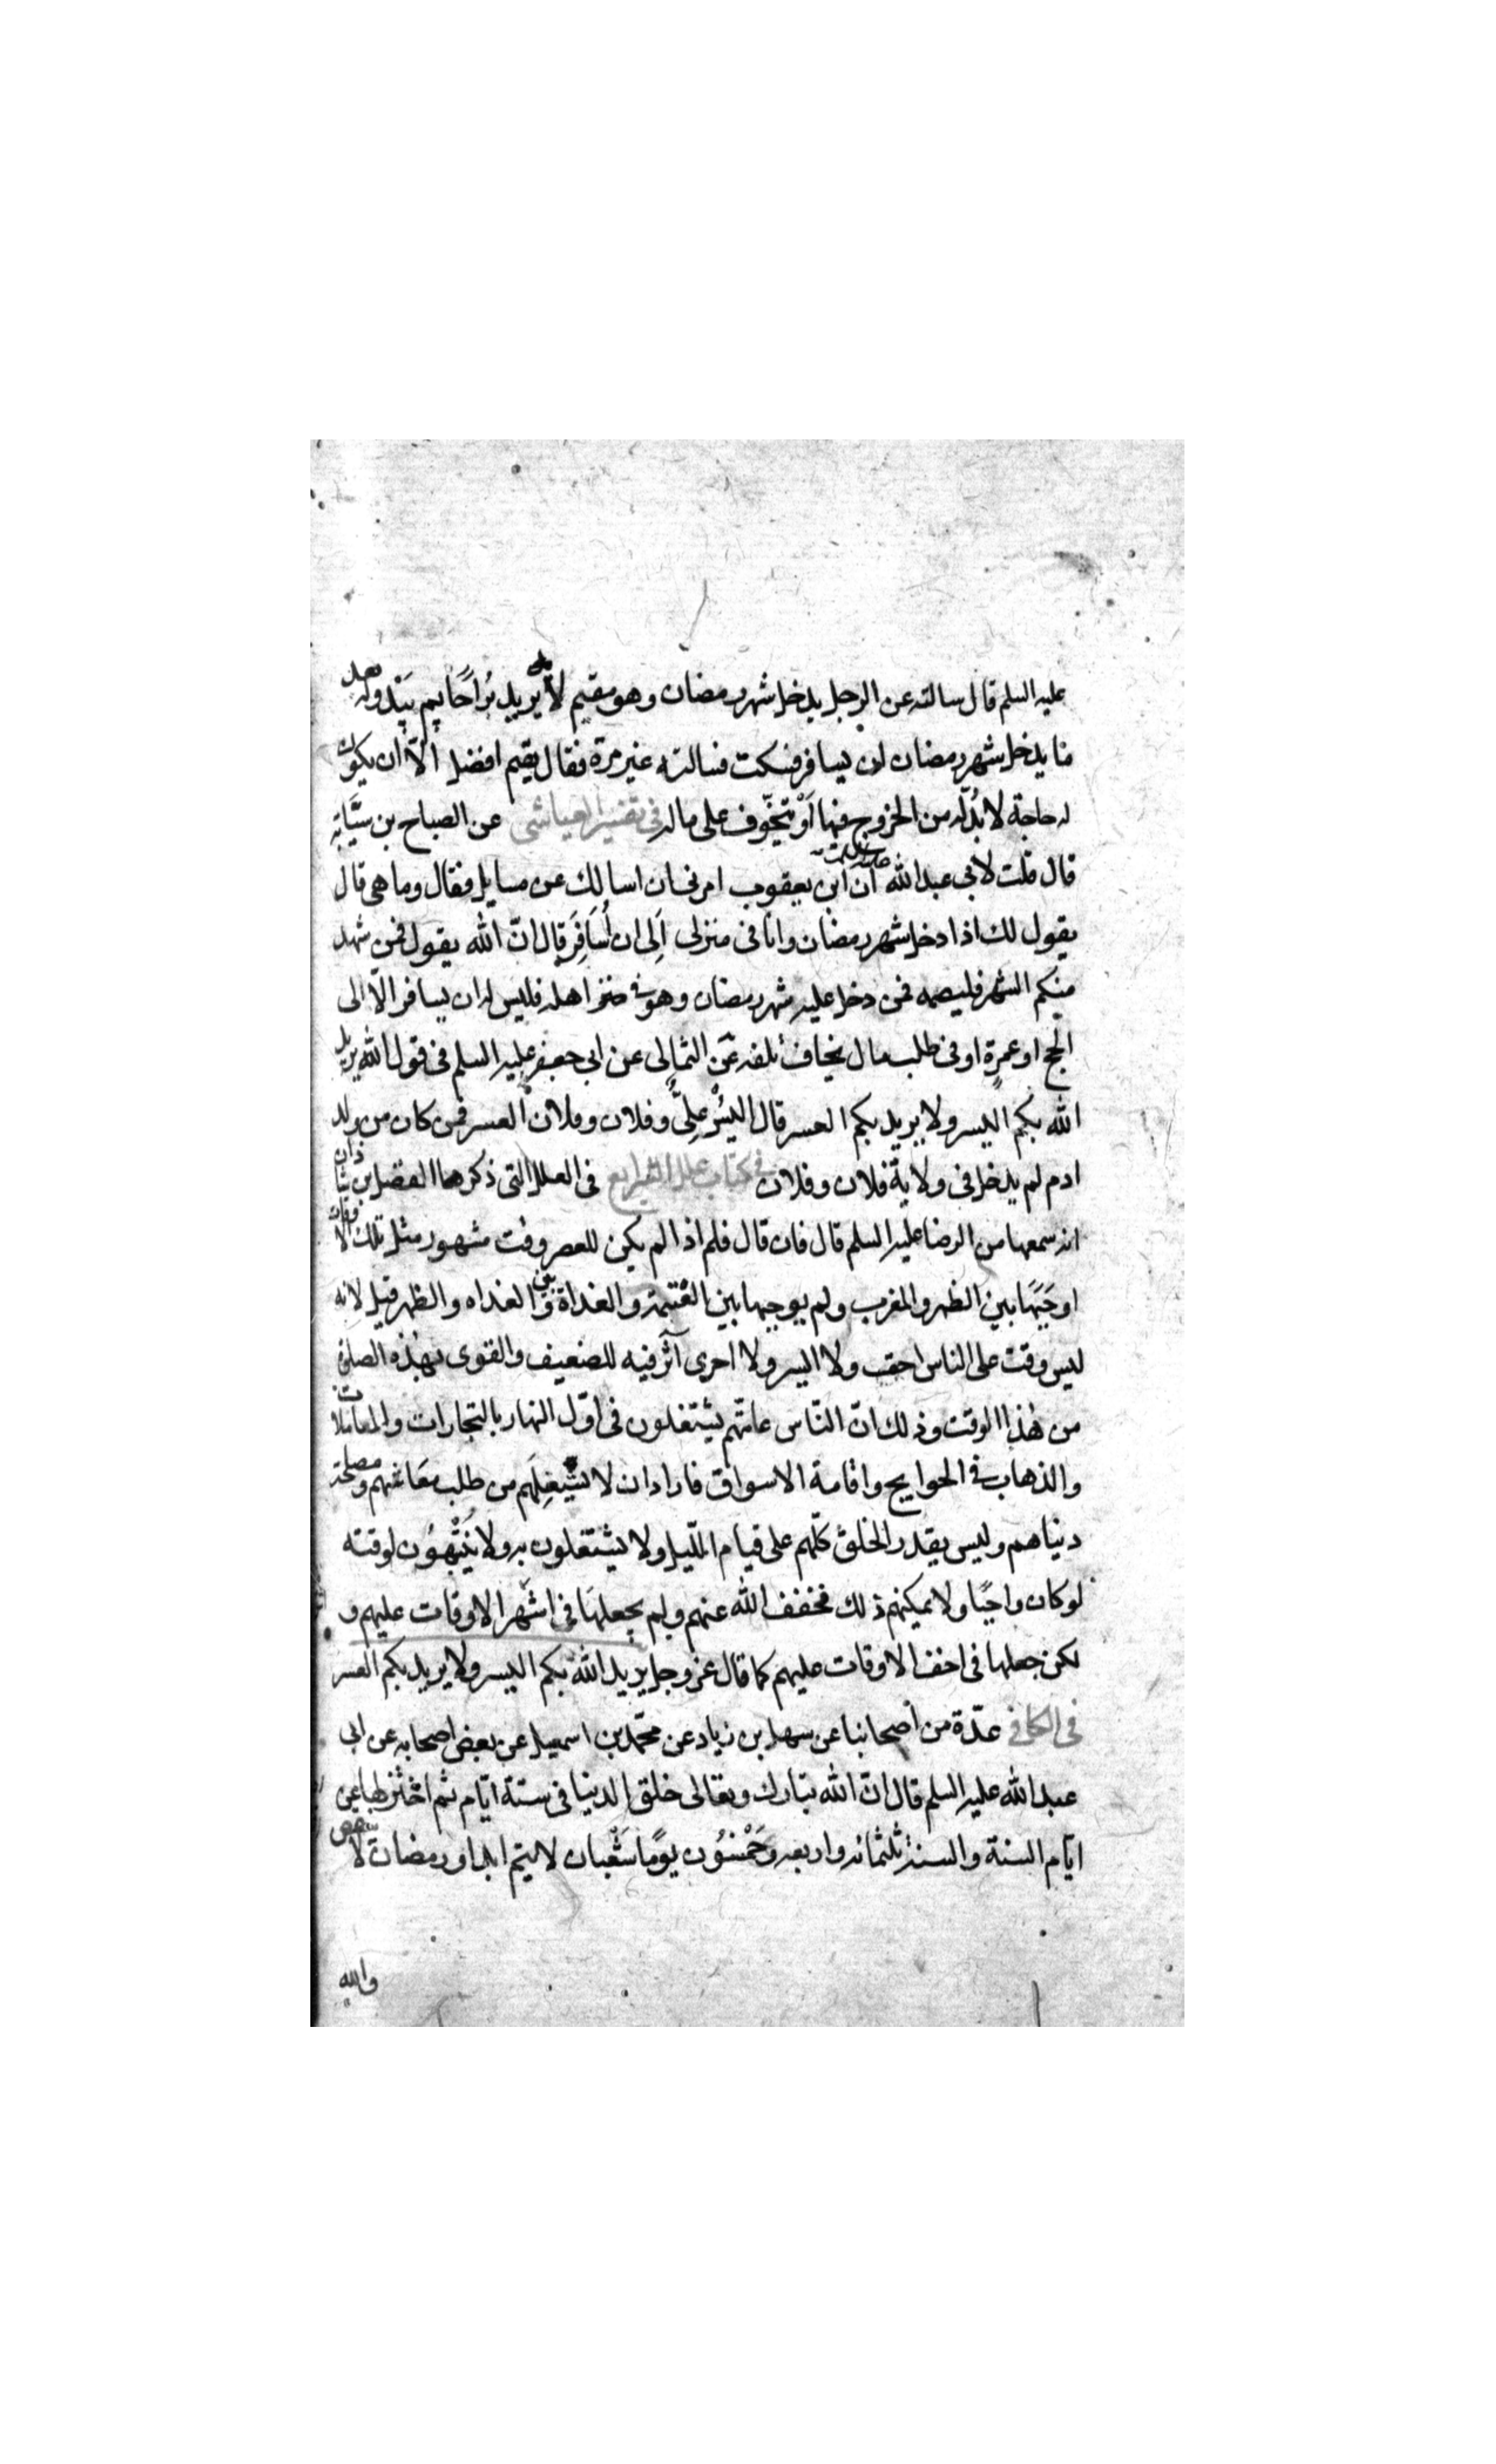 عليه السلم قال سالته عن الرجل يدخل شهر رمضان وهو مقيم لا يريد بُراحًا ثم يبدوله بعد
ما يدخل شهر رمضان ان يسافر فسكت فسالته غير مرة فقال يقيم افضل الّا ان يكون
له حاجة لا بُدّله من الخروج فيها اَوْ يتخوّف على ماله فى تفسير العياشى عن الصباح بن سيّابة
قال قلت لابى عبد الله عليه السلم ان ابن يعقوب امرنى ان اسالك عن مسايل فقال وما هى قال
يقول لك اذا دخل شهر رمضان وانا فى منزلى اَلِى ان اُسَافِرَ قال انّ الله يقول فمن شهد
منكم الشهر فليصمه فمن دخل عليه شهر رمضان وهو فى اهله فليس له ان يسافر الّا الى
الحج او عمرة او فى طلب مال يخاف تلفه عن الثمالى عن ابى جعفر عليه السلم فى قول الله يريد
الله بكم اليسر ولا يريد بكم العسر قال اليُسْر علىٌّ وفلان وفلان العسر فمن كان من ولد
ادم لم يدخل فى ولاية فلان وفلان فى كتاب علل الشرايع فى العلل التى ذكرها الفضل بن شاذان
انه سمعها من الرضا عليه السلم قال فان قال فلم اذا لم يكن للعصر وقت مشهور مثل تلك الاوقات
اوجَبَهَا بين الظهر والمغرب ولم يوجبها بين العَتَمة والغداة وبين الغداه والظهر قيل لانه
ليس وقت على الناس اخف ولا ايسر ولا احرى آثر فيه للضعيف والقوى بهذه الصلوة
من هٰذا الوقت وذلك انّ النّاس عامّتهم يشتغلون فى اوّل النهار بالتجارات والمعاملات
والذهاب فى الحوايج واقامة الاسواق فاراد ان لا يشغلهم من طلب معاشهم ومصلحة
دنياهم وليس يقدر الخلق كلّهم على قيام اللّيل ولا يشتغلون به ولا يَنْتَبِهُون لوقته
لو كان واجبًا ولا يمكنهم ذلك فخفف الله عنهم ولم يجعلهَا فى اشهر الاوقات عليهم و
لكن جعلها فى اخف الاوقات عليهم كما قال عز وجل يريد الله بكم اليسر ولا يريد بكم العسر
فى الكافى عدّة من أصحابنا عن سهل بن زياد عن محمّد بن اسمعيل عن بعض اصحابه عن ابى
عبد الله عليه السلم قال انّ الله تبارك وتعالى خلق الدنيا فى ستة ايّام ثم اختزلها عن
ايّام السنة والسنة ثلثمائه واربعه وخَمْسُون يومًا شَعْبان لا يتم ابدا ورمضان لا ينقص
والله